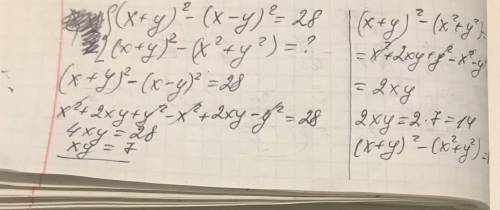 (x+y)² - (x-y)² = 28
(x+y)² - (x²+y²) = ?
(x+y)² - (x-y)² = 28
x²+2xy+y²-x²+2xy-y² = 28
4xy = 28
xy = 7
(x+y)² - (x²+y²)
= x²+2xy+y²-x²-y
= 2xy
2xy = 2·7 = 14
(x+y)² - (x²+y²) =